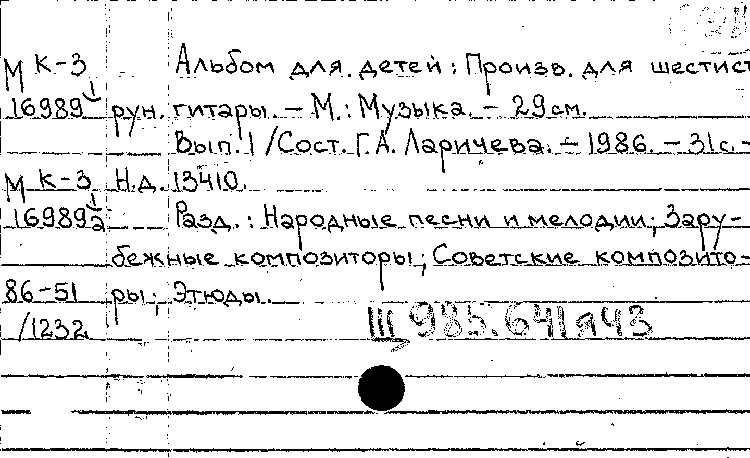 М К-3 Альбом для детей : Произв. для шестист
16989 рун. гитары. – М. : Музыка. – 29 см.
Вып. 1 / Сост. Г. А. Ларичева. – 1986. – 31 с. –
М К-3 Н.д. 13410.
16989а Разд. : Народные песни и мелодии; Зару-
бежные композиторы; Советские композито-
86-51 ры; Этюды.
/1232 Щ 985.641я43